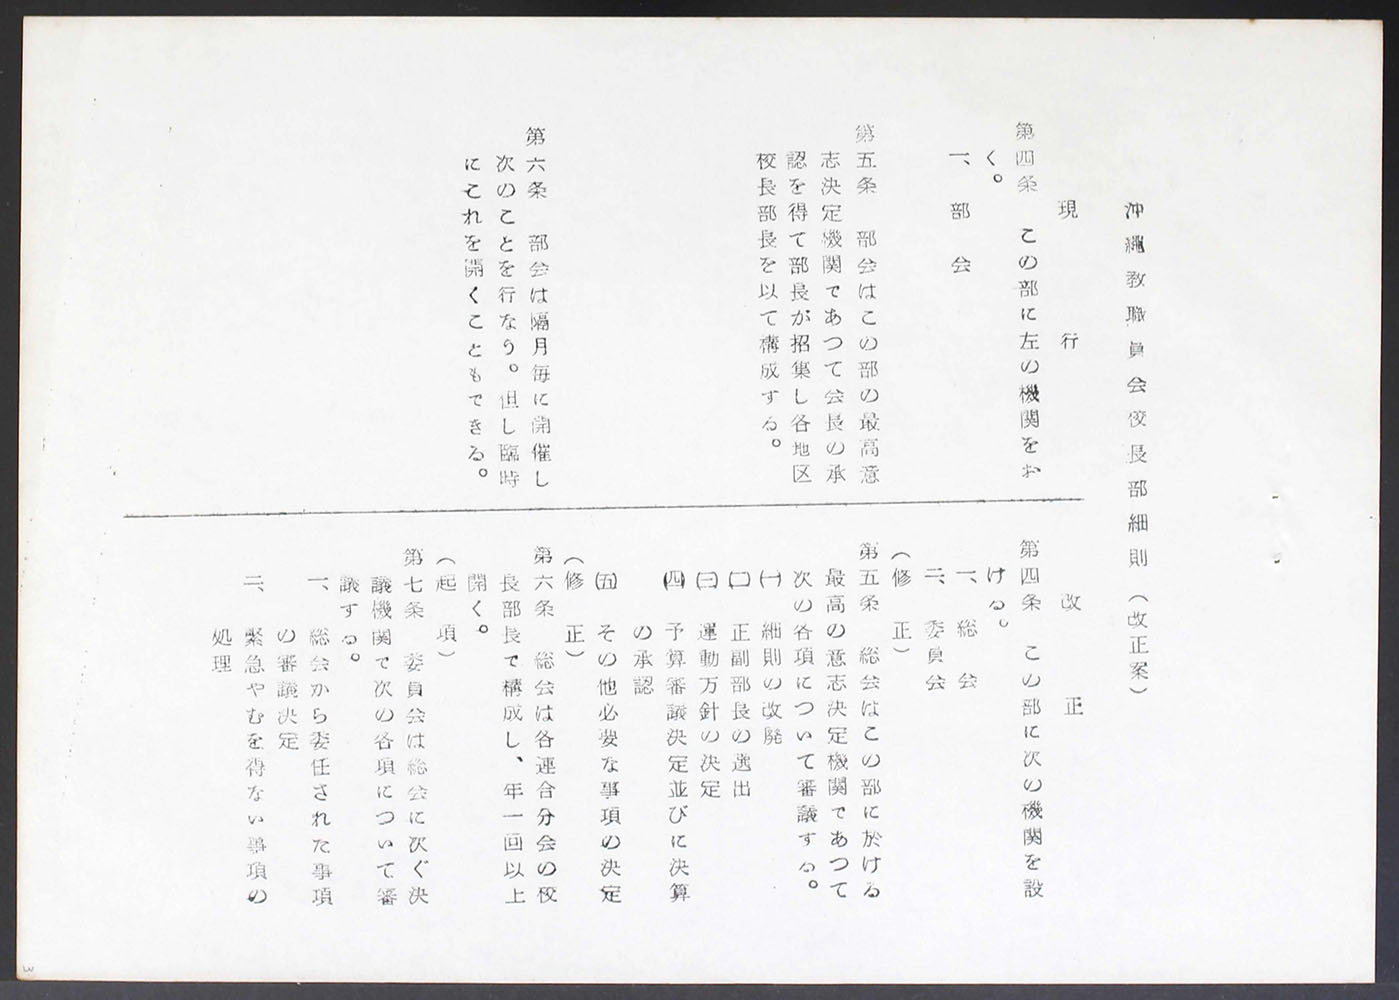 沖縄教職員会校長部細則（改正案）
現行
第四条　この部に左の機関をお
く。
一、部会
第五条　部会はこの部の最高意
志決定機関であつて会長の承
認を得て部長が招集し各地区
校長部長を以て構成する。
第六条　部会は隔月毎に開催し
次のことを行なう。但し臨時
にこれを開くこともできる。
改正
第四条　この部に次の機関を設
ける。
一、総会
二、委員会
（修正）
第五条　総会はこの部に於ける
最高の意志決定機関であつて
次の各項について審議する。
㈠　細則の改廃
㈡　正副部長の選出
㈢　運動方針の決定
㈣　予算審議決定並びに決算
の承認
㈤　その他必要な事項の決定
（修正）
第六条　総会は各連合分会の校
長部長で構成し、年一回以上
開く。
（起項）
第七条　委員会は総会に次ぐ決
議機関で次の各項について審
議する。
一、総会から委任された事項
の審議決定
二、緊急やむを得ない事項の
処理
3